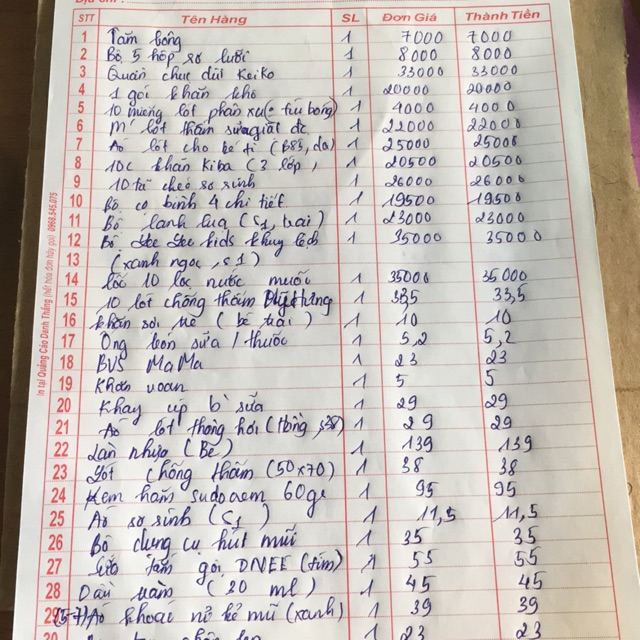 STT Tên Hàng SL Đơn Giá Thành Tiền
1 Tăm bông 1 7000 7000
2 Bộ 5 hộp sơ lưới 1 8000 8000
3 Quần chục dài Keiko 1 33000 33000
4 1 gói khăn khô 1 20000 20000
5 10 miếng lót phân xu 1 4000 4000
6 lót thấm sữa 1 22000 22000
7 Áo lót cho bé ti (B83, da) 1 25000 25000
8 10c khăn Kiba (3 lớp, 1 20500 20500
9 10 tã chéo sơ sinh 1 26000 26000
10 Bộ cọ bình 4 chi tiết 1 19500 19500
11 Bộ lanh lụa (S1, trai) 1 23000 23000
12 Bộ kids khuy lệch 1 35000 35000
13 (xanh ngọc, s1)
14 lốc 10 lọ nước muối 1 35000 35000
15 10 lót chống thấm 1 33,5
16 khăn sơi (bé trai) 1 10 10
17 Ống bón sữa / thuốc 1 5,2 5,2
18 BVS MaMa 1 23 23
19 Khăn voan 1 5 5
20 Khay úp b sữa 1 29 29
21 Áo lót thông hơi (Hồng, s38) 1 29 29
22 Lăn nhựa (Bé) 1 139 139
23 Lót chống thấm (50x70) 1 38 38
24 Kem hăm sudocrem 60g 1 95 95
25 Áo sơ sinh (S1) 1 11,5 11,5
26 Bộ dụng cụ hút mũi 1 35 35
27 tắm gói DNEE (tím) 1 55 55
28 Dầu tràm (30 ml) 1 45 45
29 Áo khoác nỉ kẻ mũ (xanh) 1 39 39
30 1 23 23
In tại Quảng Cáo Danh Thắng (hết hóa đơn hãy gọi) 0968.545.075